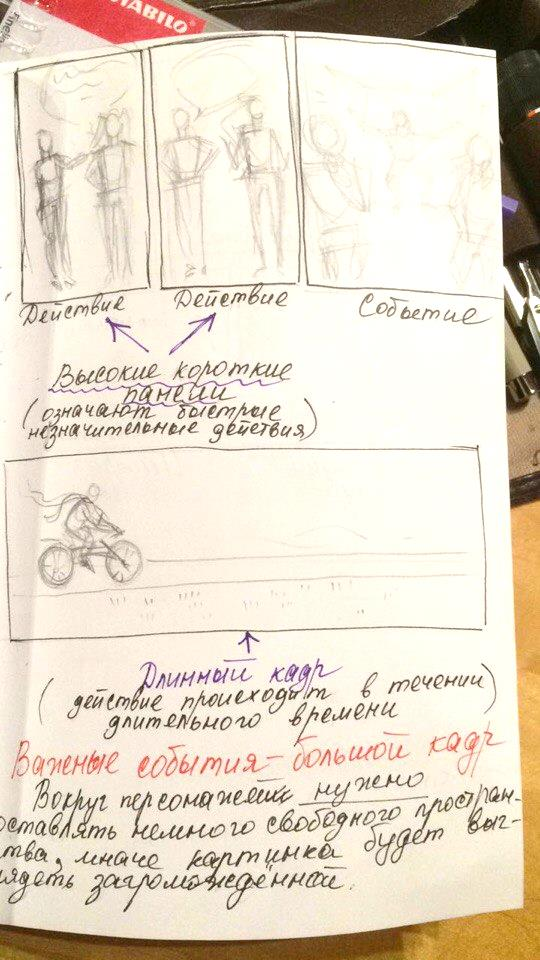 STABILO
Действие
Действие
Событие
Высокие короткие
панели
(означают быстрые
незначительные действия)
Длинный кадр
(действие происходит в течении)
длительного времени
Важные события - большой кадр
Вокруг персонажей нужно
оставлять немного свободного простран-
ства, иначе картинка будет выг-
лядеть загромождённой.